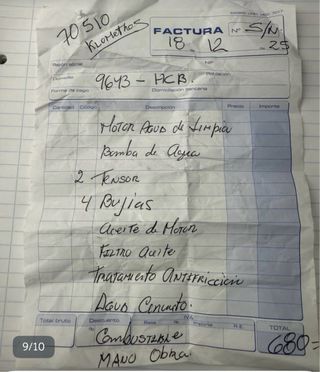 70510
Kilometros
FACTURA Nº S/N.
18. 12 25
Razón social
Domicilio 9643 - HCB.
Población
Forma de pago Domiciliación bancaria
Cantidad Código Descripción Precio Importe
Motor Agua de Limpia
Bomba de Agua
2 Tensor
4 Bujias
Aceite de Motor
Filtro Aceite
Tratamiento Antifriccion
Agua
Combustible
MANO Obra.
Total bruto Descuento Base IVA Importe R.E. TOTAL
680=
9/10